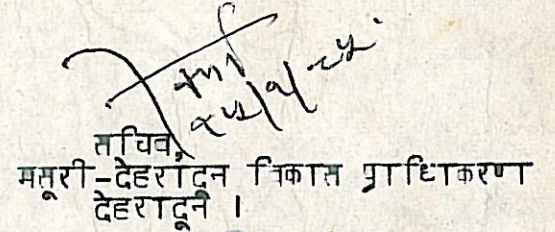 सचिव,
मसूरी-देहरादून विकास प्राधिकरण
देहरादून ।